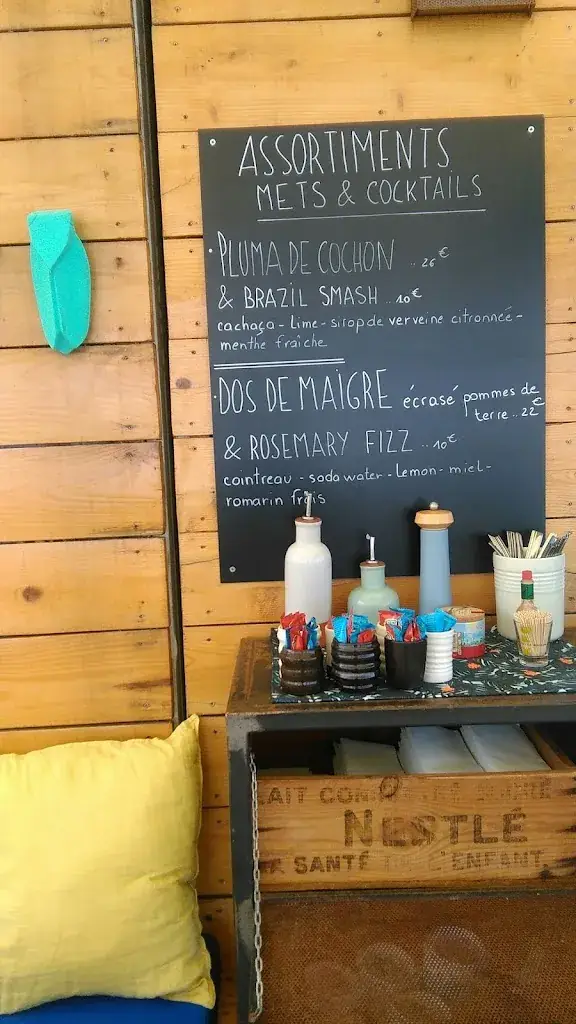 ASSORTIMENTS
METS & COCKTAILS
• PLUMA DE COCHON .. 26€
& BRAZIL SMASH .. 10€
cachaça - Lime - sirop de verveine citronnée -
menthe fraîche
• DOS DE MAIGRE écrasé pommes de
terre .. 22€
& ROSEMARY FIZZ .. 10€
cointreau - soda water - Lemon - miel -
romarin frais
LAIT
NESTLÉ
SANTÉ DE L'ENFANT